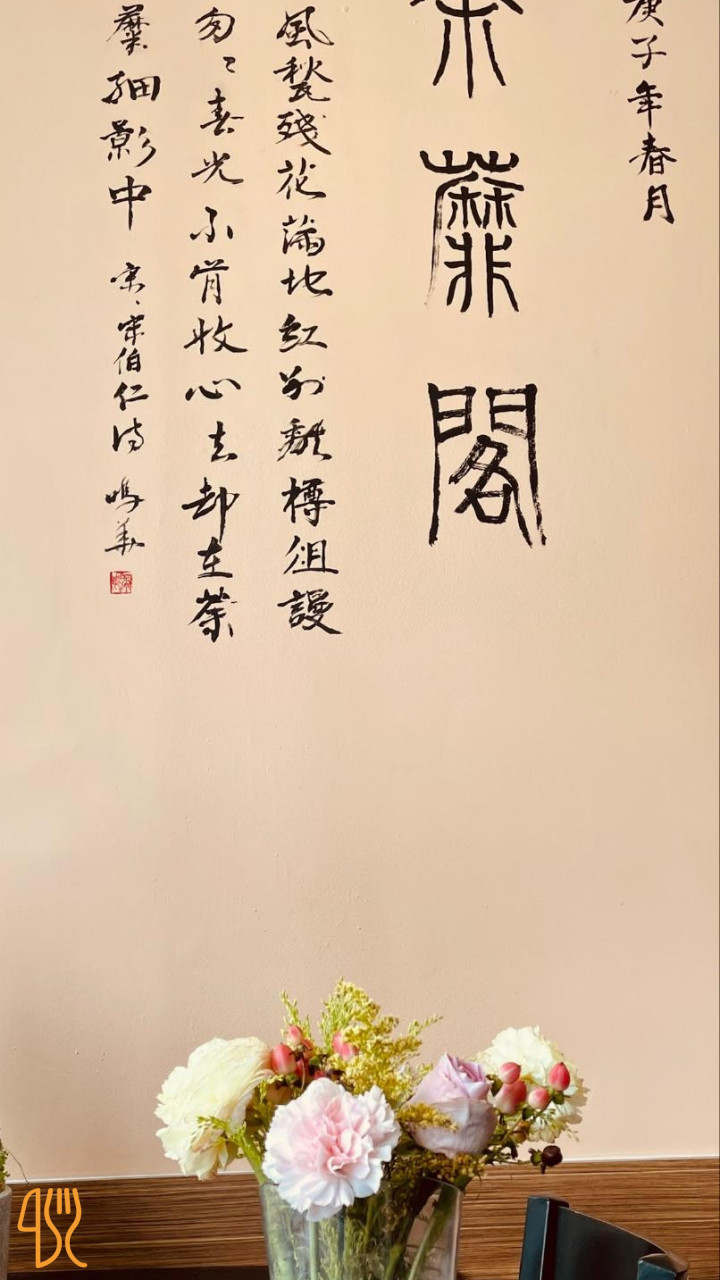 庚子年春月
荼蘼閣
風甃殘花滿地紅別離樽俎謾
匆〻春光不肯收心去却在荼
蘼細影中 宋、宋伯仁詩 鳴華